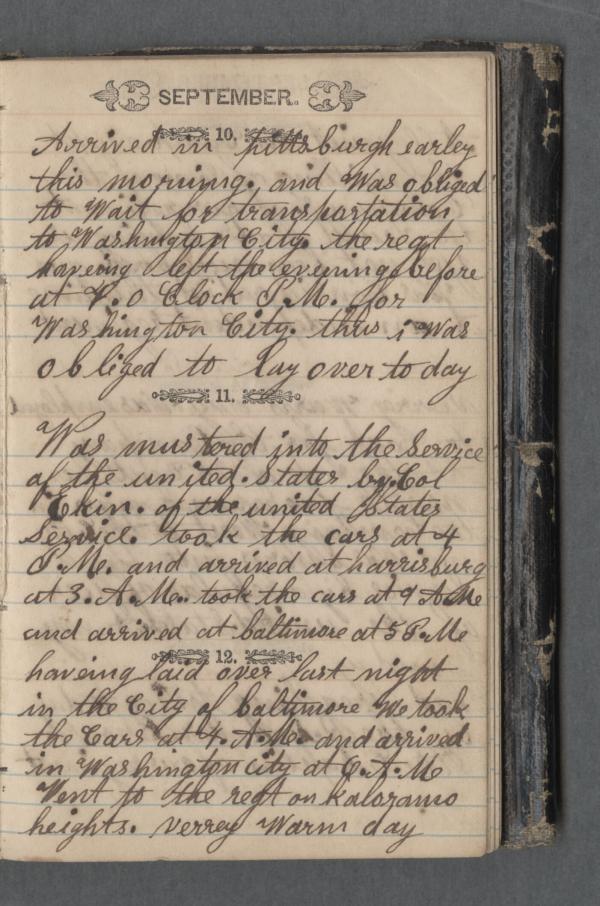 SEPTEMBER.
10.
Arrived in pittsburgh earley
this morning. and Was obliged
to Wait for transportation
to Washington City. the regt
haveing left the evening before
at 4. O Clock P.M. for
Washington City. thus i Was
obliged to lay over to day
11.
Was mustered into the Service
of the united. States by. Col
Ekin. of the united States
Service. took the cars at 4
P.M. and arrived at harrisburg
at 3. A.M. took the cars at 9 A Me
and arrived at baltimore at 5 P.Me
12.
haveing laid over last night
in the City of baltimore We took
the Cars at 4. A.M. and arrived
in Washington city at 6. A.M
Went to the regt on kaloramo
heights. verrey Warm day